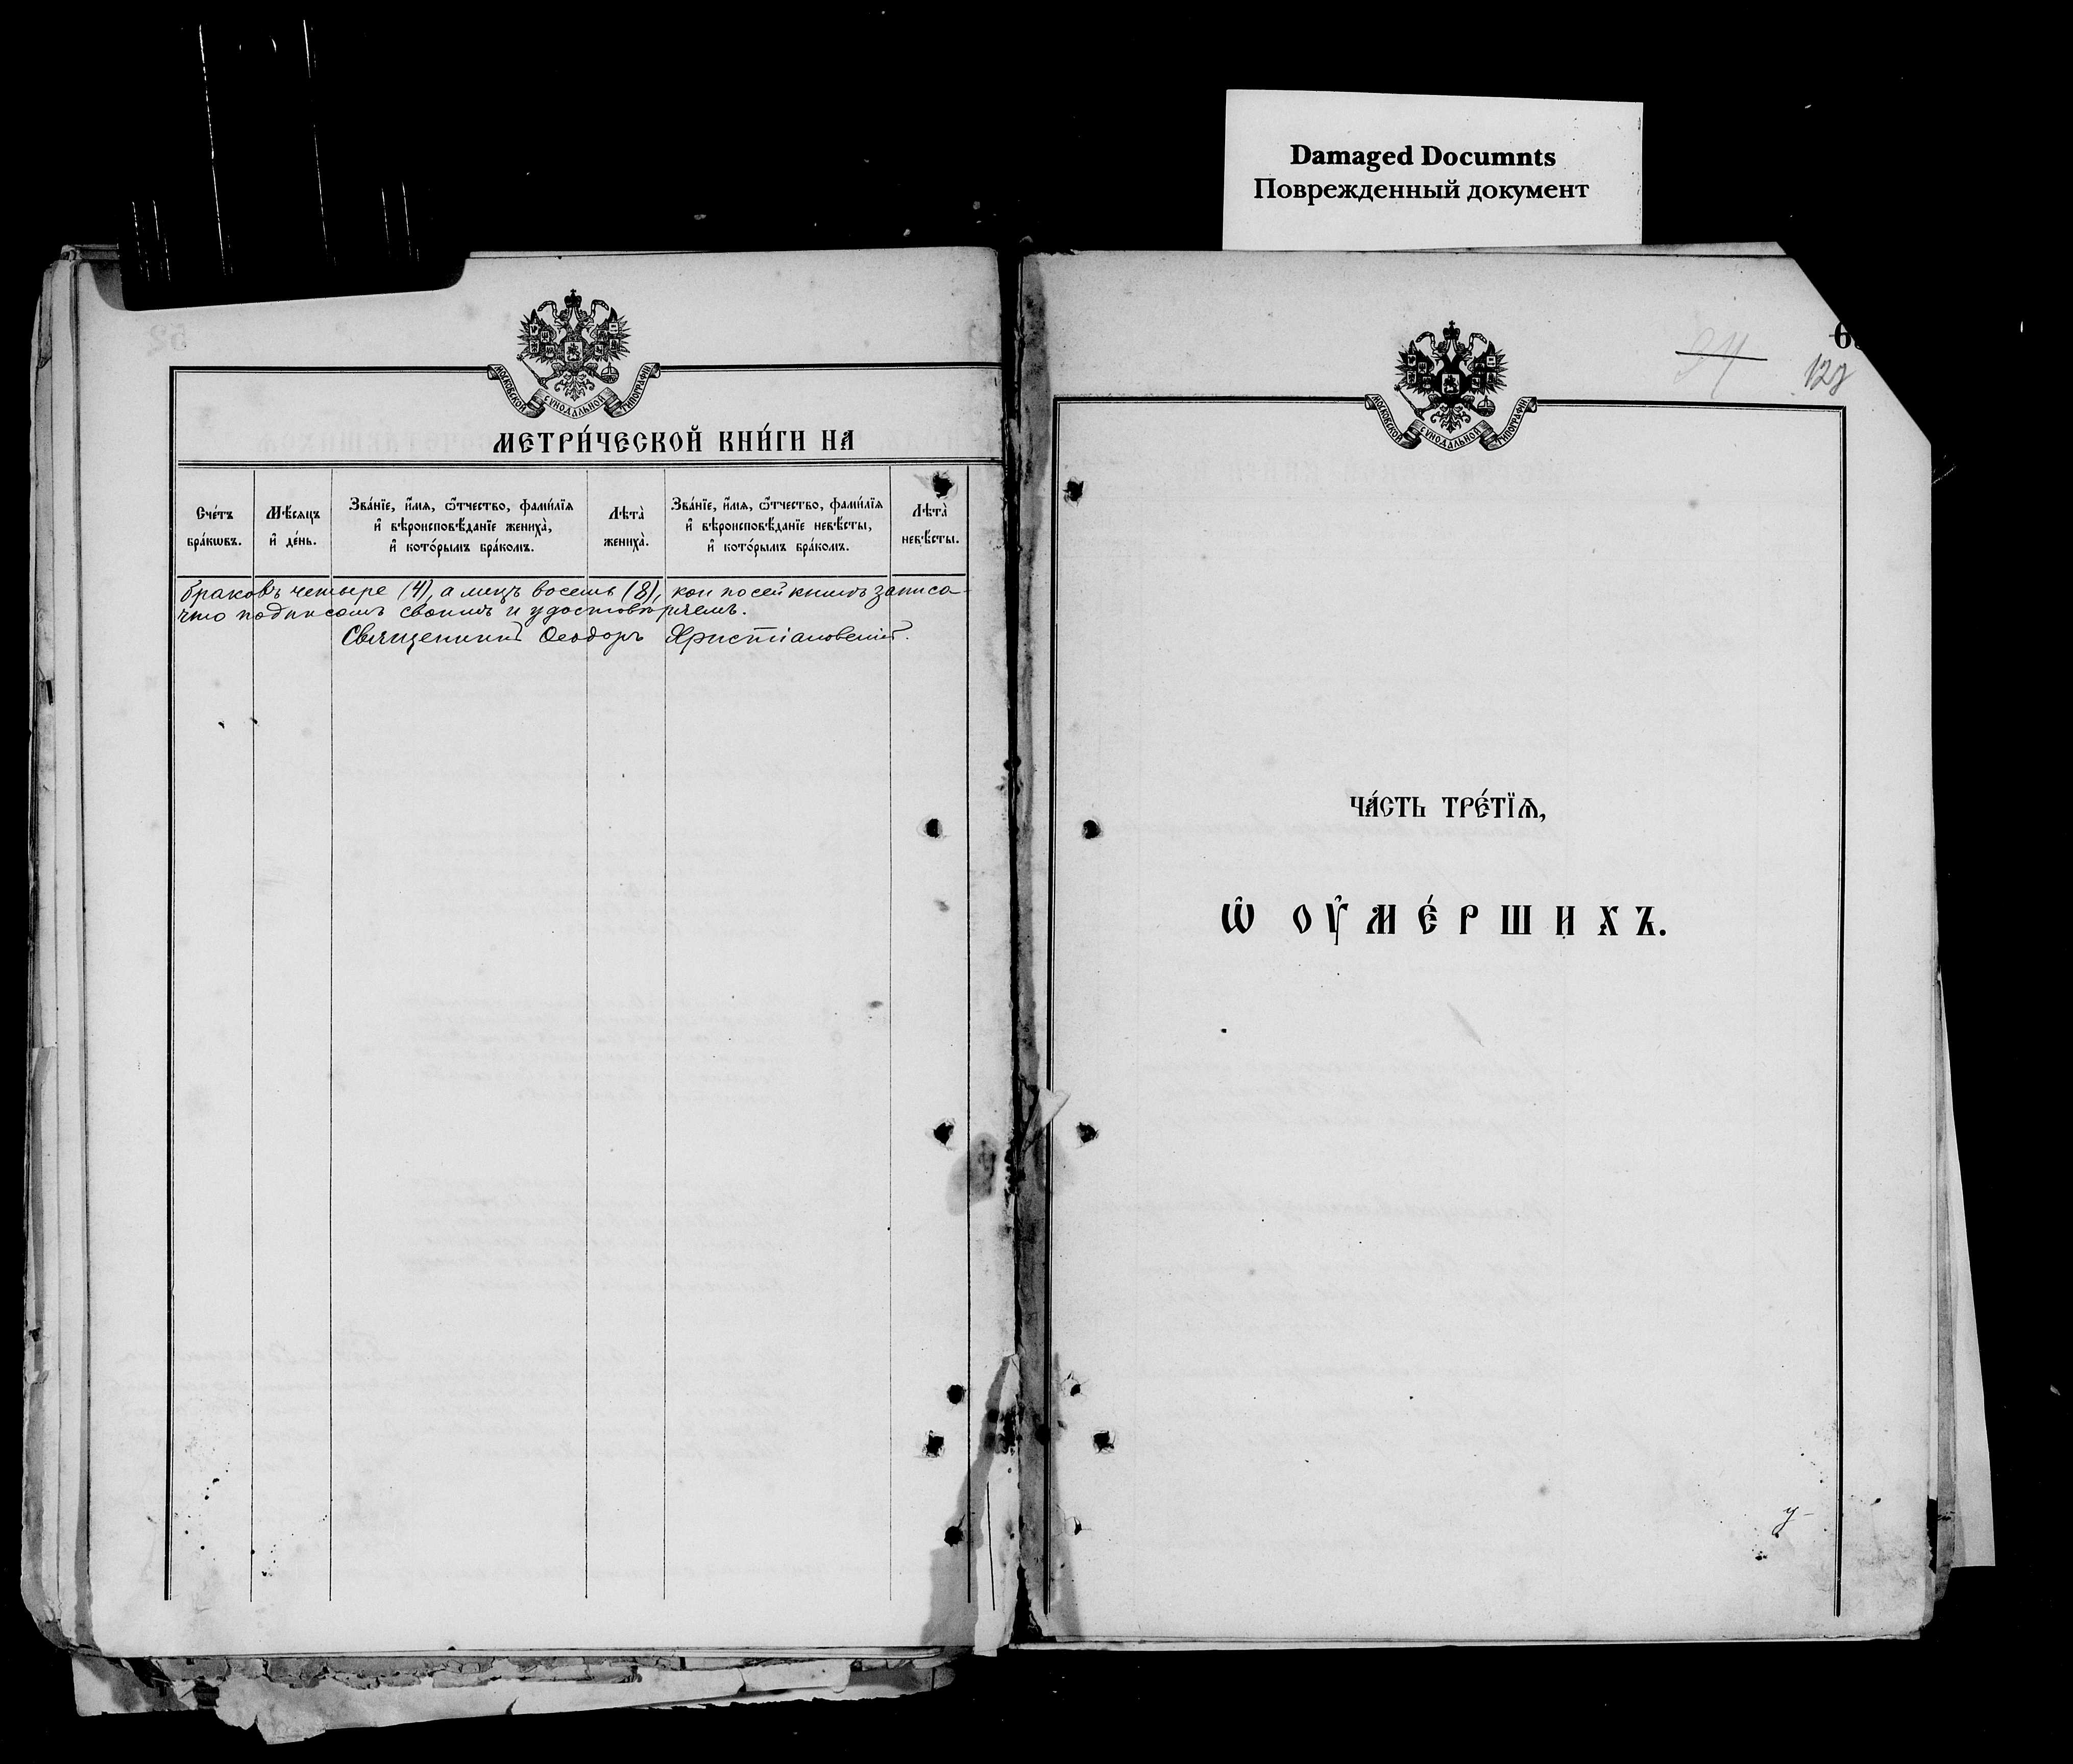 Damaged Documnts
Поврежденный документ
МОСКОВСКОЙ СѴНОДАЛЬНОЙ ТИПОГРАФІИ
МЕТРИ́ЧЕСКОЙ КНИ́ГИ НА
Сче́тъ бра́кѡвъ.
Мѣ́сяцъ и҆ де́нь.
Зва́нїе, и҆́мя, ѻ҆́тчество, фами́лїя
и҆ вѣроисповѣ́данїе жениха̀,
и҆ кото́рымъ бра́комъ.
Лѣта̀ жениха̀.
Зва́нїе, и҆́мя, ѻ҆́тчество, фами́лїя
и҆ вѣроисповѣ́данїе невѣ́сты,
и҆ кото́рымъ бра́комъ.
Лѣта̀ невѣ́сты.
браковъ четыре (4), а лицъ восемь (8), кои по сей книгѣ записа-
что подписомъ своимъ и удостовѣряемъ.
Священникъ Ѳеодоръ Христіановскій.
52
МОСКОВСКОЙ СѴНОДАЛЬНОЙ ТИПОГРАФІИ
ЧА́СТЬ ТРЕ́ТЇѦ,
Ѡ҆ ОУ҆МЕ́РШИХЪ.